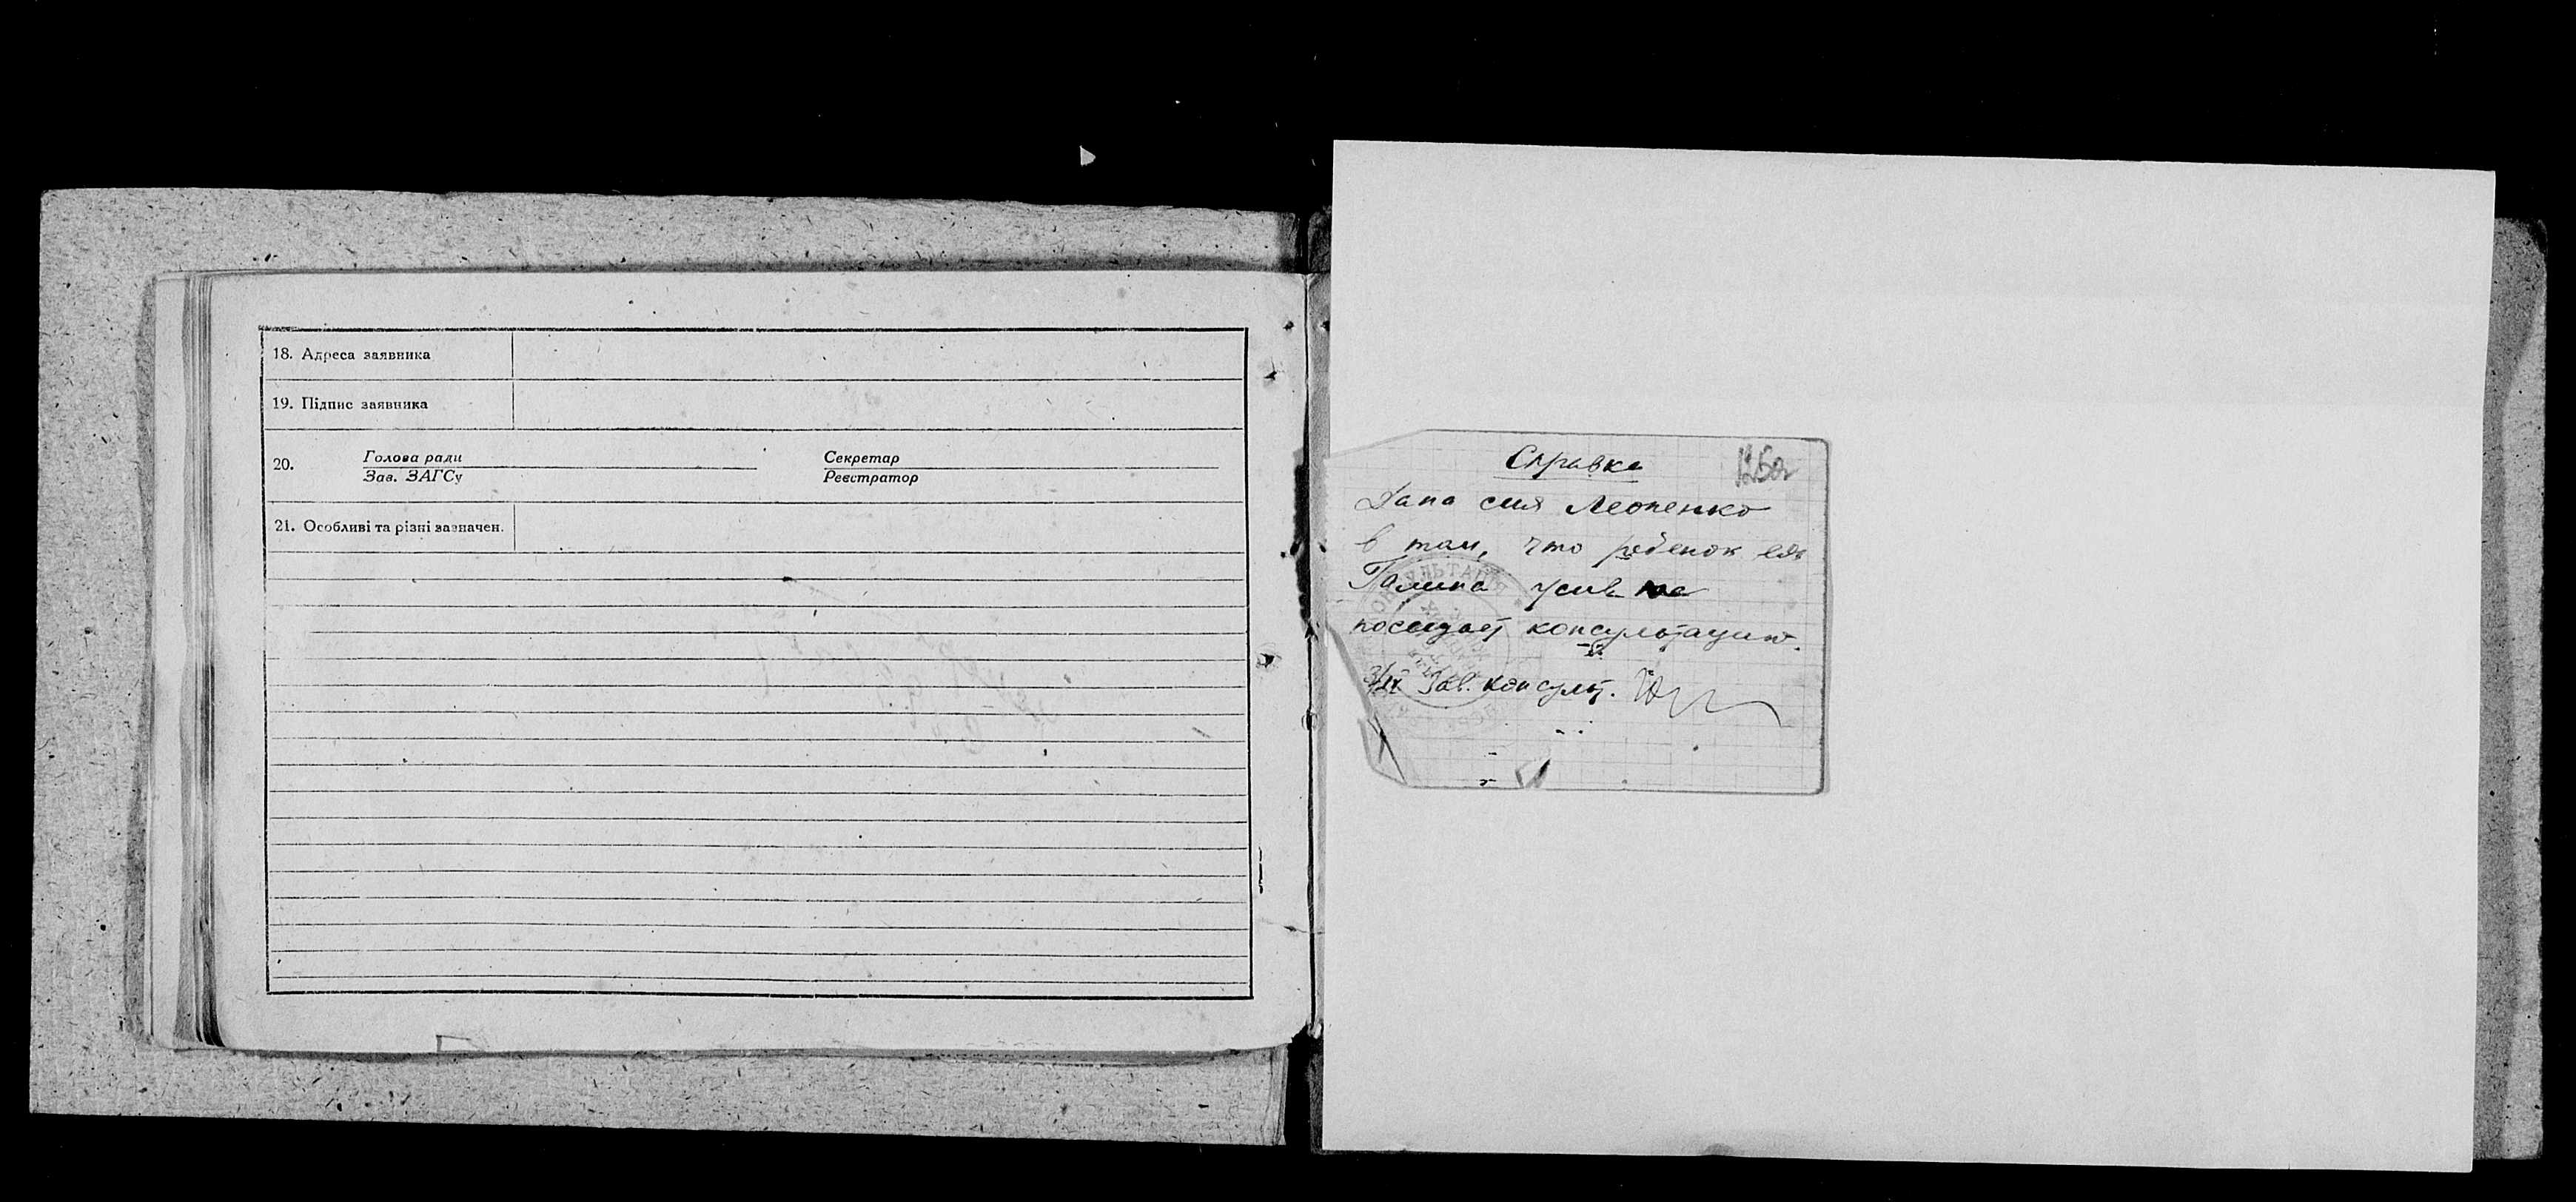 18. Адреса заявника
19. Підпис заявника
20. Голова ради Секретар
Зав. ЗАГСу Реєстратор
21. Особливі та різні зазначен.
Справка
125а
Дана сия Леоненко
в том, что ребенок ея
Галина
посещает консультацию.
Зав. консульт.